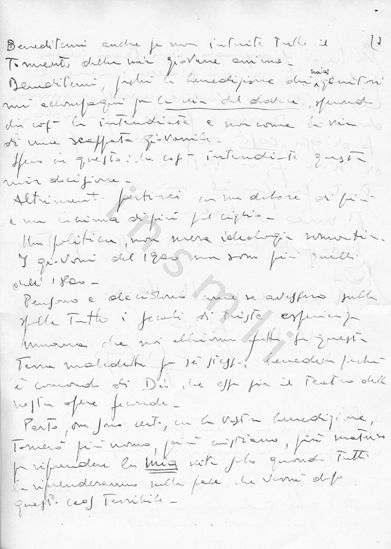 Beneditemi anche se non intuite tutto il
tormento della mia giovane anima.
Beneditemi, perché la benedizione dei miei genitori
mi accompagni per la via del dovere, sperando
che così la intendiate e non come la via
di una scappata giovanile.
Spero in questo: che così intendiate questa
mia decisione.
Altrimenti partirei con un dolore di più
e una lacrima di più sul ciglio.
Non politica, non mera ideologia romantica.
I giovani del 1900 non sono più quelli
dell'800.
Pensano e decidono come se avessero sulle
spalle tutti i secoli di triste esperienza
umana che noi abbiamo fatto su questa
terra maledetta per sé stessa, benedetta perché
è comando di Dio che essa sia il teatro delle
nostre opere feconde.
Parto, ma sono certo, con la vostra benedizione,
tornerò più uomo, più cristiano, più maturo
per riprendere la mia vita solo quando tutti
la riprenderanno nella pace che verrà dopo
questo caos terribile.
insmli